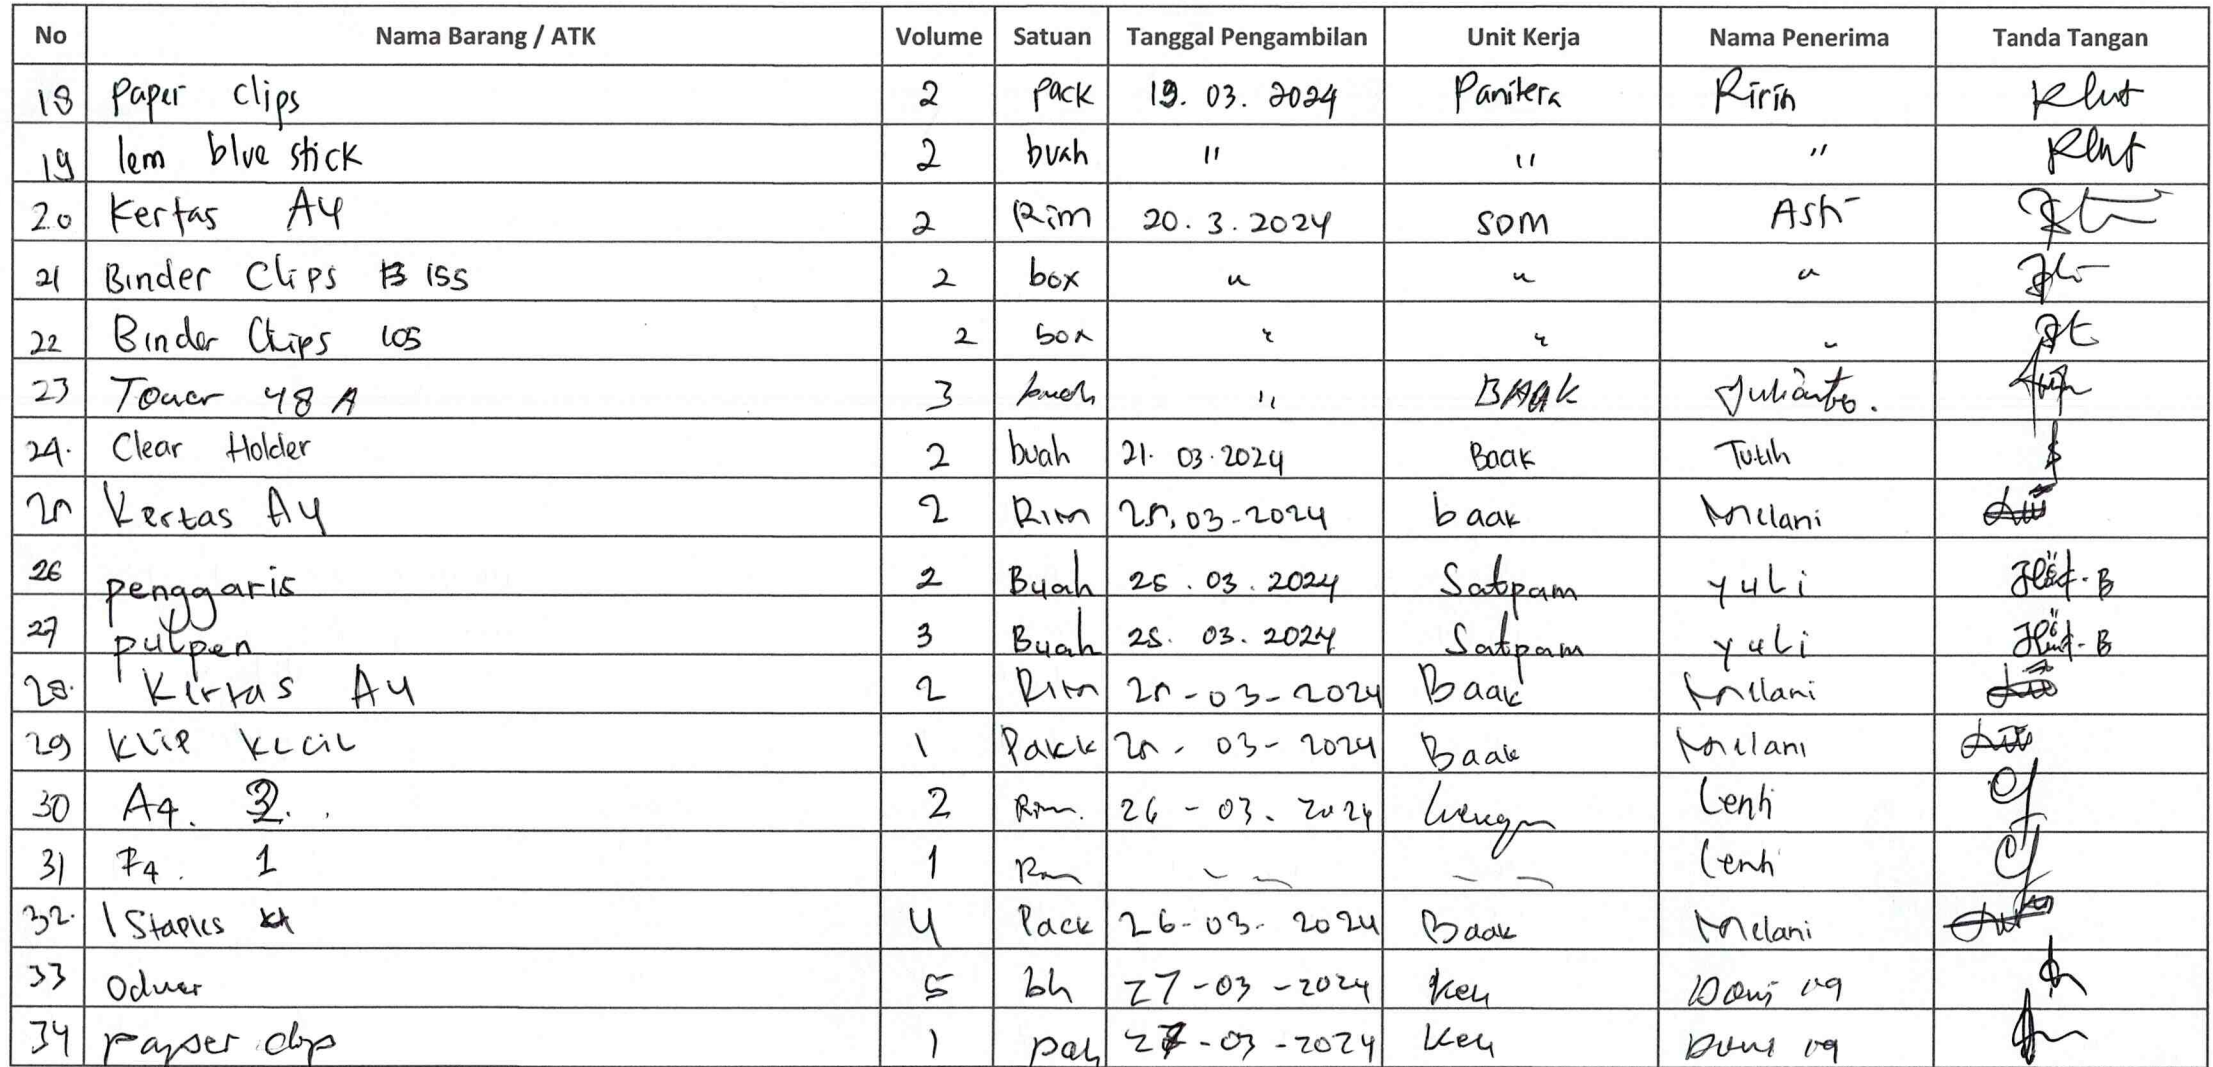 No Nama Barang / ATK Volume Satuan Tanggal Pengambilan Unit Kerja Nama Penerima Tanda Tangan
18 Paper clips 2 pack 19. 03. 2024 Panitera Ririn
19 lem blue stick 2 buah " " "
20 Kertas A4 2 Rim 20. 3. 2024 SDM Asti
21 Binder Clips B 155 2 box " " "
22 Binder Clips 105 2 box " " "
23 Toner 48 A 3 buah " BAAK Julianto.
24. Clear Holder 2 buah 21. 03. 2024 Baak Tutih
25 Kertas A4 2 Rim 25. 03-2024 baak Melani
26 penggaris 2 Buah 25. 03. 2024 Satpam yuli
27 pulpen 3 Buah 25. 03. 2024 Satpam yuli
28. Kertas A4 2 Rim 25-03-2024 Baak Melani
29 Klip kecil 1 Pakk 25-03-2024 Baak Melani
30 A4. 2 Rim. 26-03-2024 Lenti
31 F4. 1 1 Rim Lenti
32. 1 Staples 4 Pack 26-03-2024 Baak Melani
33 5 bh 27-03-2024 Keu
34 papser clip 1 pak 27-03-2024 Keu